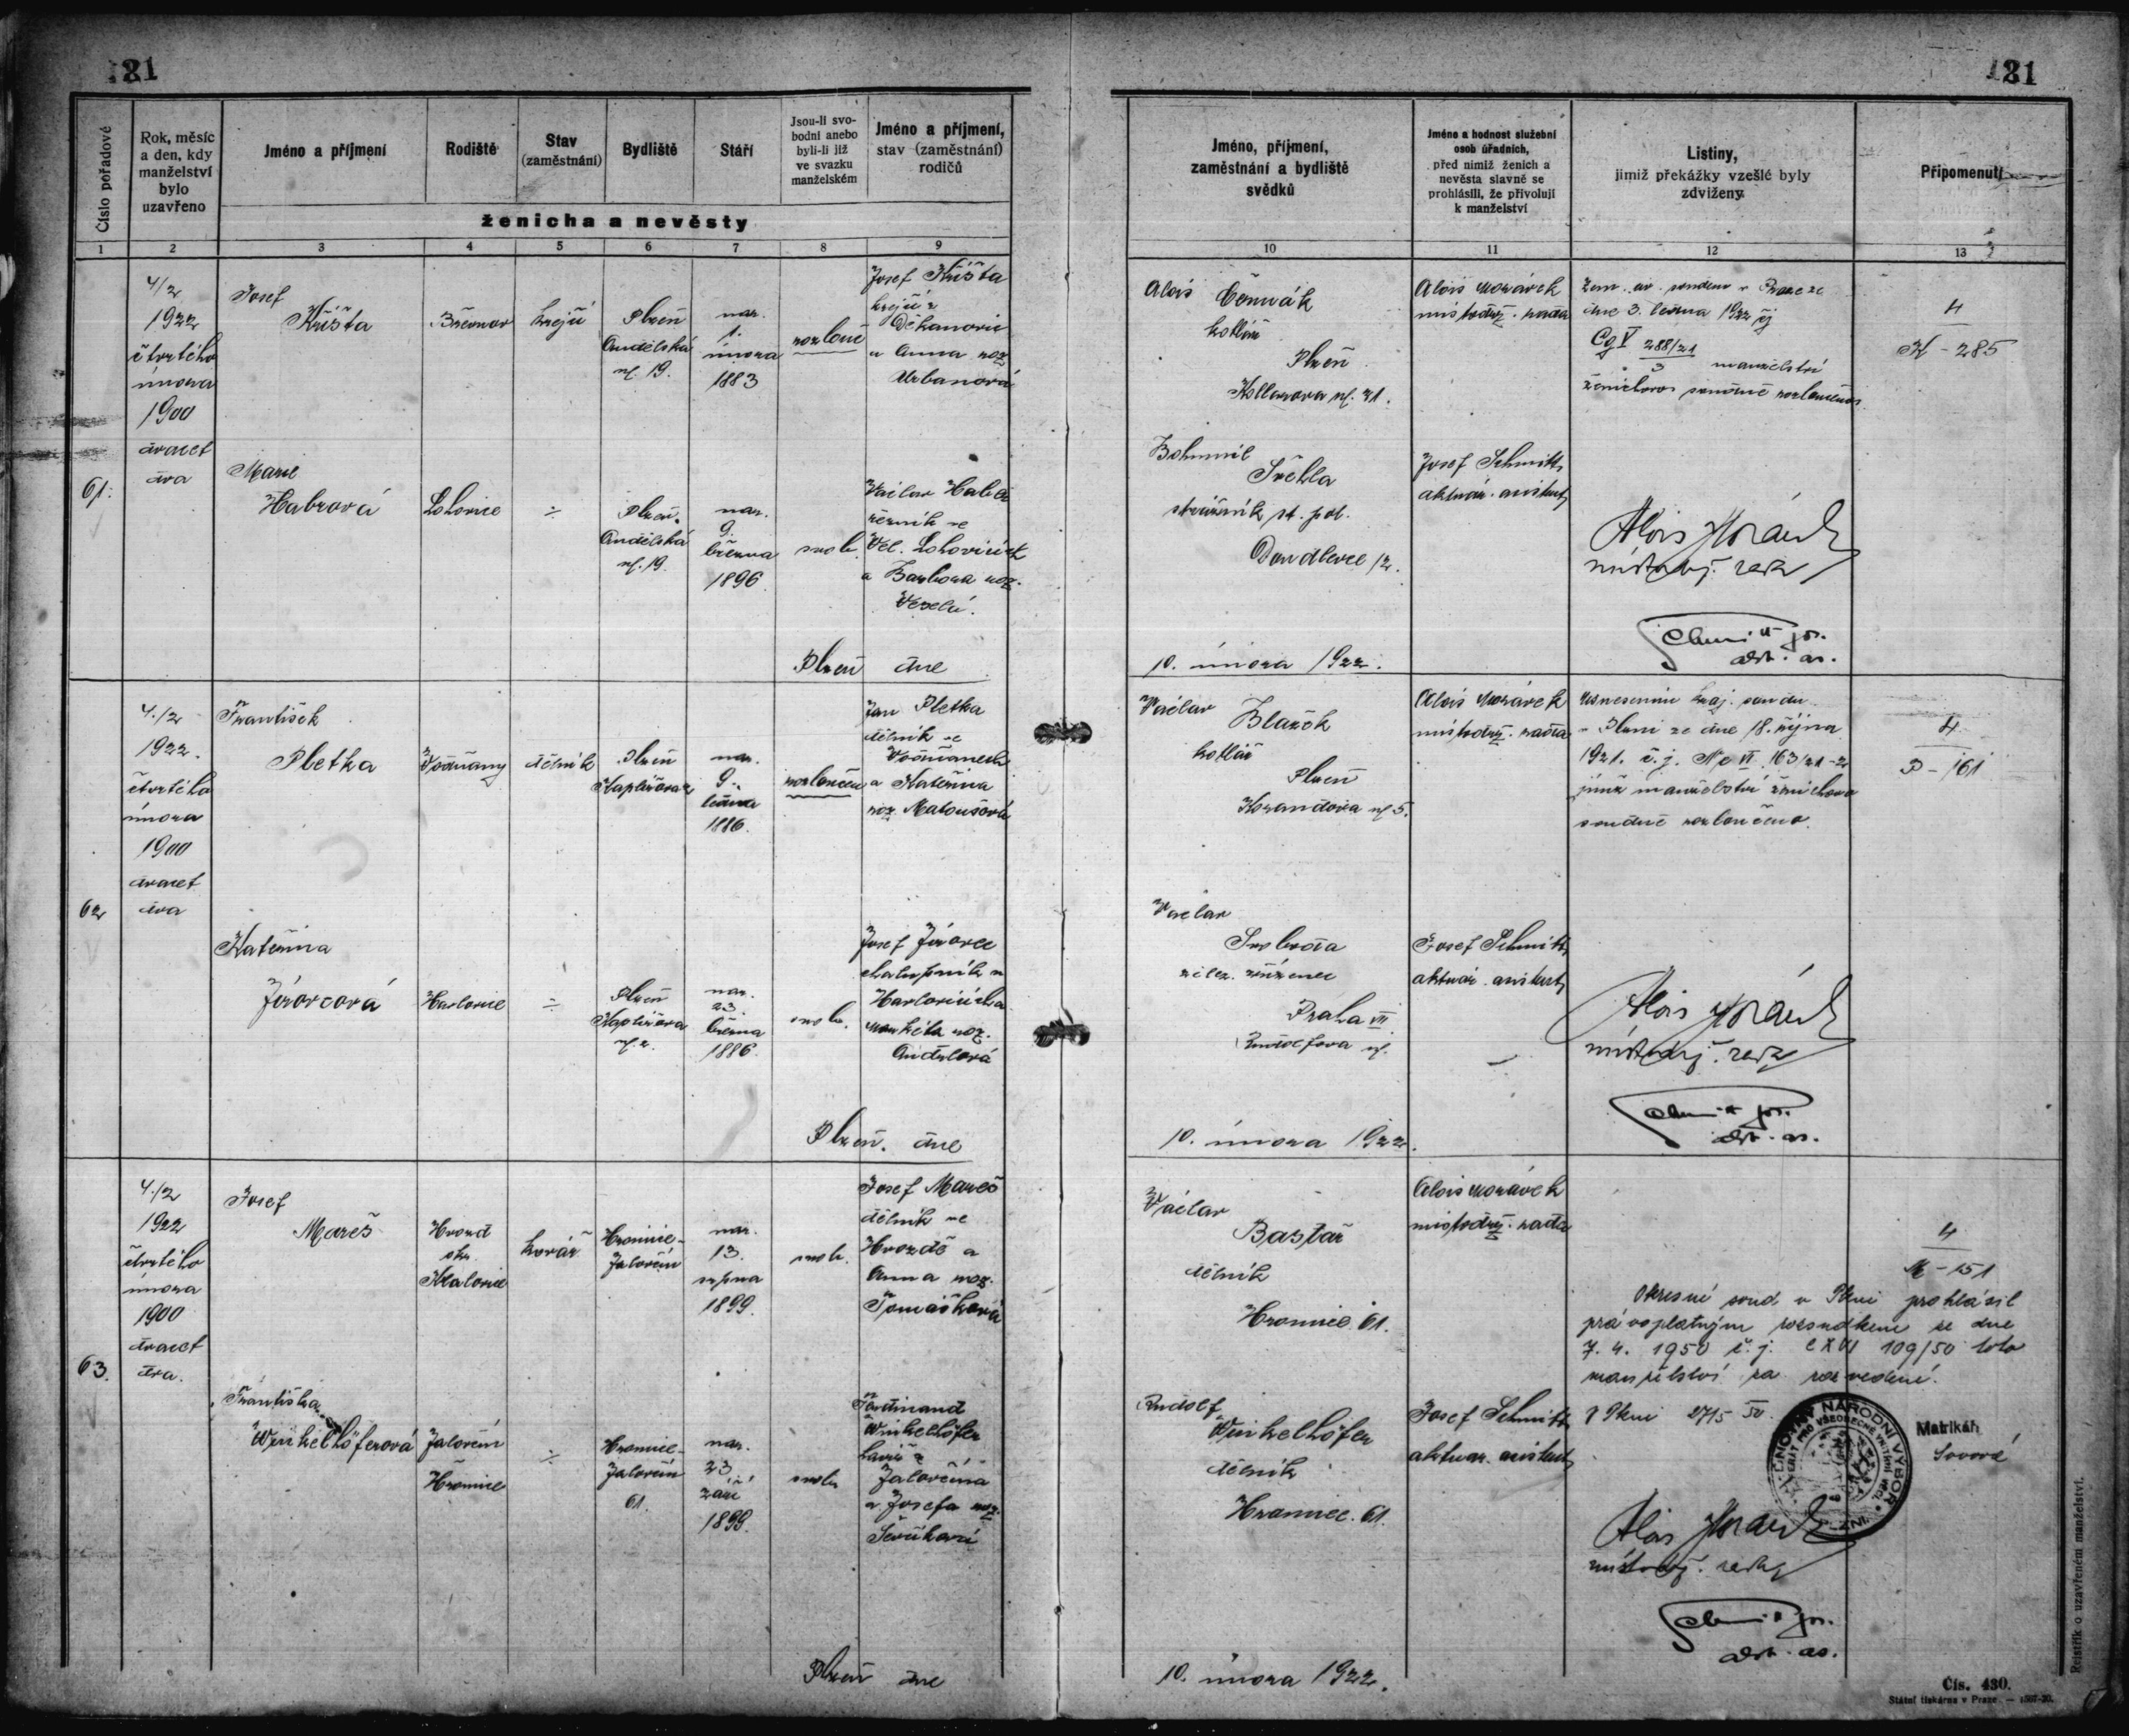 181
181
Číslo pořadové
Rok, měsíc a den, kdy manželství bylo uzavřeno
Jméno a příjmení
Rodiště
Stav (zaměstnání)
Bydliště
Stáří
Jsou-li svobodni anebo byli-li již ve svazku manželském
Jméno a příjmení, stav (zaměstnání) rodičů
ženicha a nevěsty
Jméno, příjmení, zaměstnání a bydliště svědků
Jméno a hodnost služební osob úřadních, před nimiž ženich a nevěsta slavně se prohlásili, že přivolují k manželství
Listiny, jimiž překážky vzešlé byly zdviženy
Připomenutí
1 2 3 4 5 6 7 8 9 10 11 12 13
61.
4/2
1922
čtvrtého
února
1900
dvacet
dva
Josef
Křišta
Břevnov
krejčí
Plzeň
Andělská
ul. 19.
nar.
1.
února
1883
rozlouč
Josef Křišta
krejčí z
Děkanovic
a Anna roz
Urbanová
Alois Čermák
kotlář
Plzeň
Kollarova ul. 21.
Alois Morávek
místodrž. rada
Zem. civ. soudem v Praze ze
dne 3. ledna 1922 čj
Cg V 288/21
3
manželství
ženichovo soudně rozloučeno
4
K - 285
Marie
Habrová
Lohovice
÷
Plzeň.
Andělská
ul. 19.
nar.
9.
března
1896.
svob.
Václav Habr
řezník ve
Vel. Lohovicích
a Barbora roz.
Veselá.
Bohumil
Švehla
strážník st. pol.
Doudlevce 12.
Josef Schmitt
aktuár. asistent
Alois Morávek
místodrž. rada
Schmitt Jos.
akt. as.
Plzeň dne
10. února 1922.
62
4./2
1922.
čtvrtého
února
1900
dvacet
dva
František
Pletka
Vodňany
dělník
Plzeň
Kaplířova 2
nar.
9.
ledna
1886.
rozloučen
Jan Pletka
dělník ve
Vodňanech
a Kateřina
roz. Matoušová
Václav
Blažek
kotlář
Plzeň
Korandova ul 5.
Alois Morávek
místodrž. rada
Usnesením kraj. soudu
v Plzni ze dne 18. října
1921. č. j. Nc VI 163/21-2
jímž manželství ženichovo
soudně rozloučeno.
4
P - 161
Kateřina
Jírovcová
Havlovice
÷
Plzeň
Kaplířova
ul. 2.
nar.
23.
března
1886.
svob.
Josef Jírovec
chalupník v
Havlovicích a
Markéta roz.
Andrlová
Václav
Svoboda
želez. zřízenec
Praha VII
Rudolfova ul.
Josef Schmitt
aktuár. asistent
Alois Morávek
místodrž. rada
Schmitt Jos.
akt. as.
Plzeň. dne
10. února 1922.
63.
4./2
1922
čtvrtého
února
1900
dvacet
dva.
Josef
Mareš
Hvozd
okr.
Kralovice
kovář
Hromnice-
Žalovčín
nar.
13.
srpna
1899.
svob.
Josef Mareš
dělník ve
Hvozdě a
Anna roz.
Tomášková
Václav
Bastař
dělník
Hromnice 61.
Alois Morávek
místodrž. rada
4
M - 151
Okresní soud v Plzni prohlásil
právoplatným rozsudkem ze dne
7. 4. 1950 č. j. C XVI 109/50 toto
manželství za rozvedené.
V Plzni 27/5 50.
Matrikář:
Františka
Winkelhöferová
Hromnice
÷
Hromnice-
61.
nar.
23
září
1899.
svob
Ferdinand
Winkelhöfer
a Josefa roz.
Rudolf
Winkelhöfer
dělník
Hromnice 61.
Josef Schmitt
aktuar. asistent
NÁRODNÍ VÝBOR
PLZNI
Alois Morávek
místodrž. rada
Schmitt Jos.
akt. as.
Plzeň dne
10. února 1922.
Čís. 430.
Státní tiskárna v Praze. — 1567-20.
Rejstřík o uzavřeném manželství.